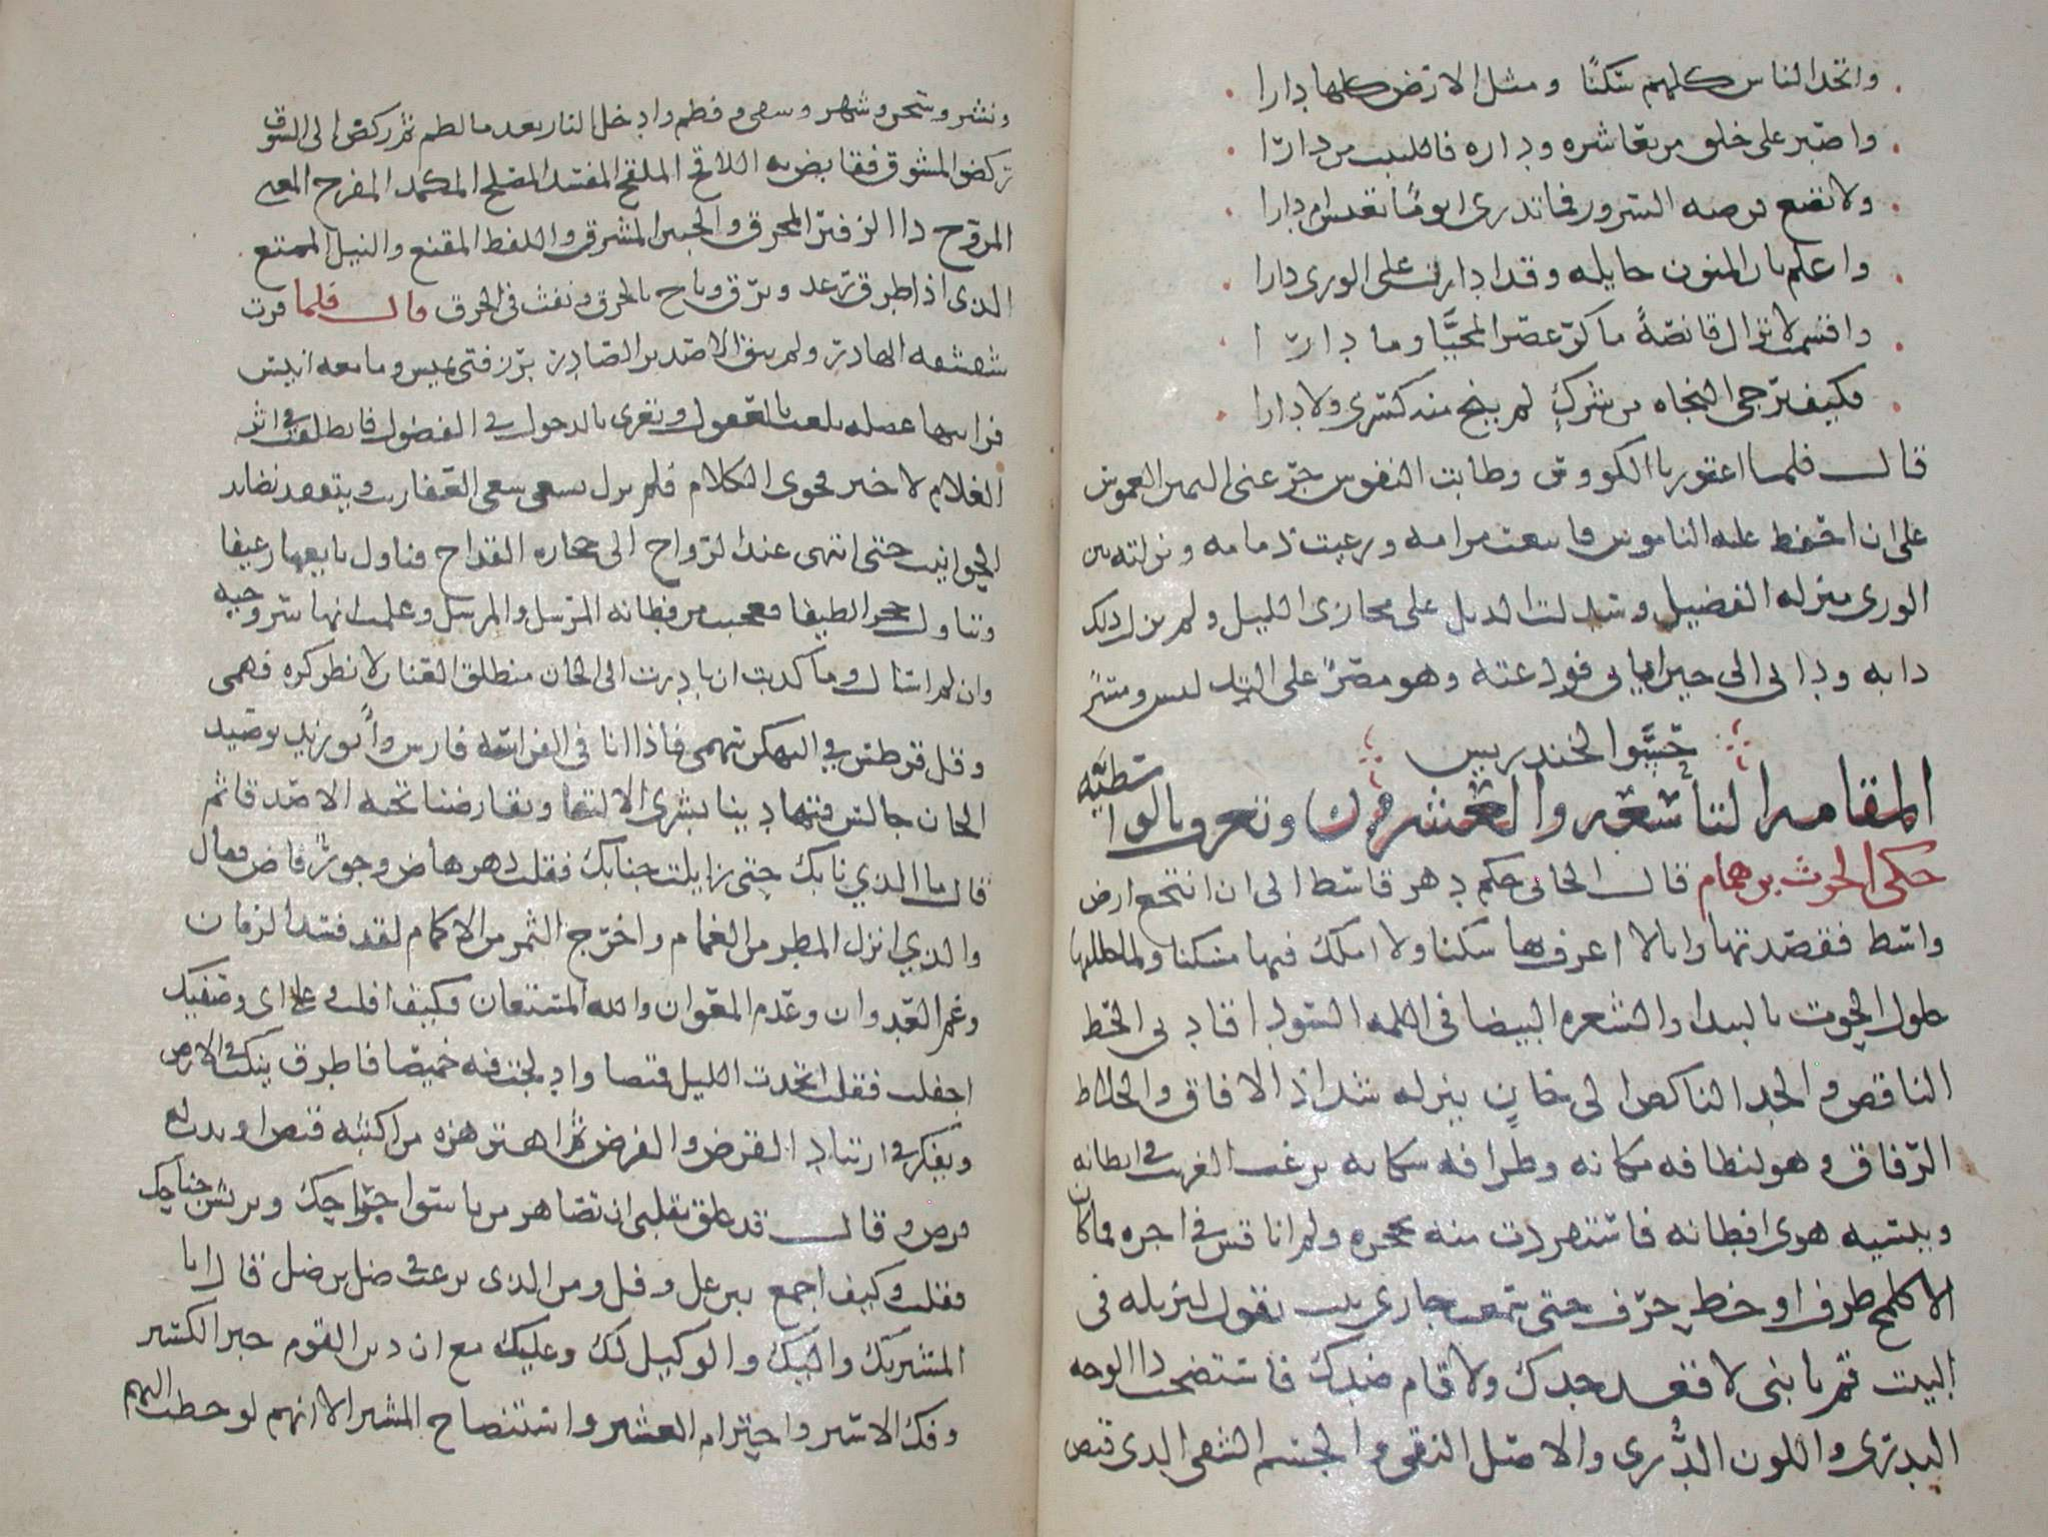 واتخذ الناس كلهم سكنًا ومثل الارض كلها دارا
واصبر على خلق من تعاشره وداره فاللبيب من دارا
ولا تضع فرصه السرور فما تدرى ايومًا تعيش ام دارا
واعلم بان المنون جايله وقد ادارت على الورى دارا
واقسمت لا تزال قانصةً ما كرّ عصر المحيَّا وما دارا
فكيف ترجى النجاه من شركٍ لم ينج منه كسرى ولا دارا
قال فلما اعتورنا الكووس وطابت النفوس جرّعنى اليمين الغموس
على ان احفظ عليه الناموس فاتبعت مرامه ورعيت ذمامه ونزلته بين
الورى منزله الفضيل وسدلت الذيل على مخازى الليل ولم يزل ذلك
دابه ودابى الى حين ايابى فودعته وهو مصرٌ على التدليس ومسرٌ
حَسْوَ الخندريس
المقامه التاسعه والعشرون وتعرف بالواسطيَّه
حكى الحرث بن همام قال الجانى حكم دهر قاسط الى ان انتجع ارض
واسط فقصدتها وانا لا اعرف بها سكنا ولا املك فيها مسكنا ولما حللتها
حلول الحوت بالبيدا والشعره البيضا فى اللمه السودا قادنى الحظ
الناقص والجد الناكص الى خانٍ ينزله شذاذ الافاق واخلاط
الرفاق وهو لنظافه مكانه وظرافه سكانه يرغب الغريب فى ايطانه
وينسيه هوى اوطانه فاستفردت منه بحجره ولم اناقس فى اجره فما كان
الا كلمح طرف او خط حرف حتى سمعت جارى بيت يقول لنزيله فى
البيت قم يا بنى لا قعد جدك ولا قام ضدك فاستصحب ذا الوجه
البدرى واللون الدُّرى والاصل النقى والجسم الشقى الذى قبض
ونشر وسجن وشهر وسقى وفطم وادخل النار بعد ما لطم ثم اركض الى السوق
ركض المشوق فقايض به اللاقح الملقح المفسد المصلح المكمد المفرح المعنى
المروح ذا الزفير المحرق والجبين المشرق واللفظ المقنع والنيل الممتع
الذى اذا طرق رعد وبرق وباح بالحرق ونفث فى الخرق قال فلما قرت
شقشقه الهادر ولم يبق الا صدر الصادر برز فتى يميس وما معه انيس
فرايتها عضله تلعب بالعقول وتغرى بالدخول فى الفضول فانطلقت فى اثر
الغلام لاخبر فحوى الكلام فلم يزل يسعى سعى العفاريت ويتفقد نضايد
الحوانيت حتى انتهى عند الرواح الى حجاره القداح فناول بايعها رغيفا
وتناول حجرا لطيفا فعجبت من فطانه المرسل والمرسل وعلمت انها سروجيه
وان لم اسال وما كذبت ان بادرت الى الخان منطلق العنان لانظر كنه فهمى
وهل قرطس فى التكهن سهمى فاذا انا فى الفراسه فارس وابو زيد بوصيد
الخان جالس فتهادينا بشرى الالتقا وتقارضنا تحيه الاصدقا ثم
قال ما الذي نابك حتى زايلت جنابك فقلت دهر هاض وجورٌ فاض فقال
والذي انزل المطر من الغمام واخرج الثمر من الاكمام لقد فسد الزمان
وعم العدوان وعدم المعوان والله المستعان فكيف افلت وعلى اى وصفيك
اجفلت فقلت اتخذت الليل قميصا وادلجت فيه خميصا فاطرق ينكت فى الارض
ويفكر فى ارتياد القرض والفرض ثم اهتز هزه من اكثبه قنص او بدت له
فرص وقال قد علق بقلبى ان تصاهر من ياسوا جراحك ويريش جناحك
فقلت وكيف اجمع بين غل وقل ومن الذى يرغب فى ضل بن ضل فقال انا
المشير بك واليك والوكيل لك وعليك مع ان دين القوم جبر الكسير
وفك الاسير واحترام العشير واستنصاح المشير الا انهم لو خطب اليهم